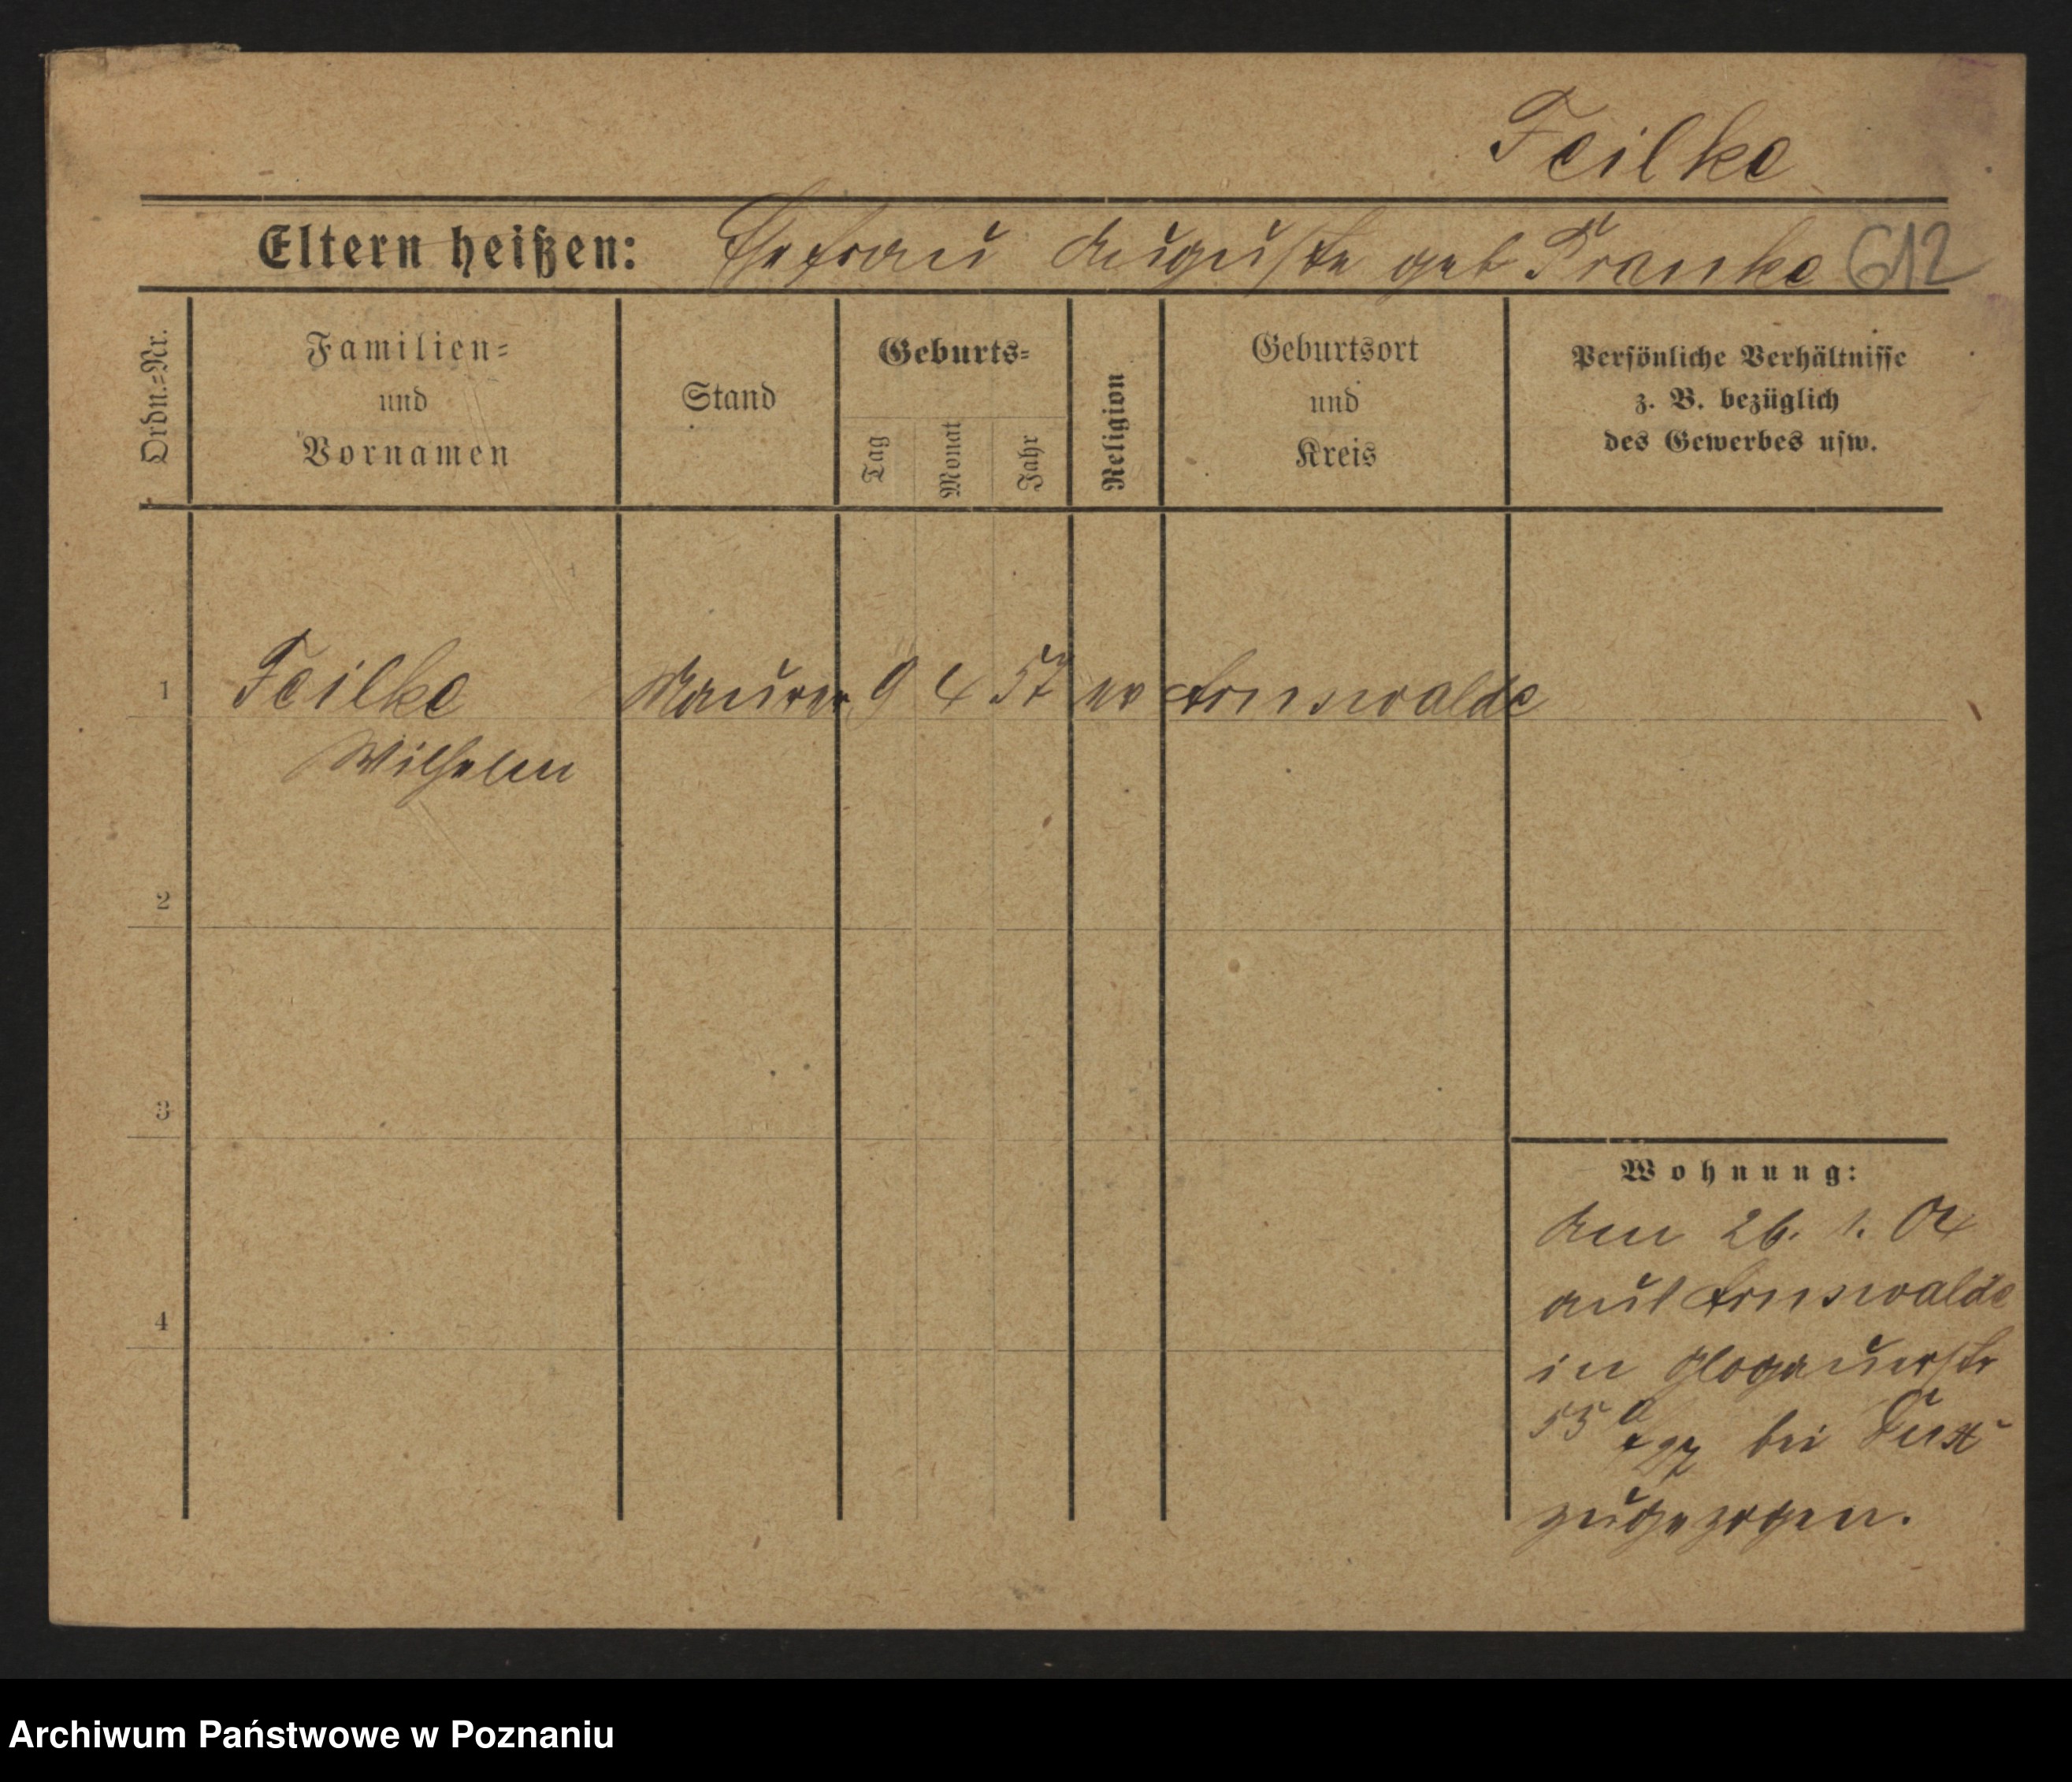 Feilke
Eltern heißen: Ehefrau Auguste geb Franke 612
Ordn.=Nr.
Familien=
und
Vornamen
Stand
Geburts=
Tag
Monat
Jahr
Religion
Geburtsort
und
Kreis
Persönliche Verhältnisse
z. B. bezüglich
des Gewerbes usw.
1 Feilke Maurer 9 4 57 ev Arnswalde
Wilhelm
2
3
4
Wohnung:
Am 26. 1. 04
aus Arnswalde
in Glogauerstr
55 a bei
zugezogen.
Archiwum Państwowe w Poznaniu